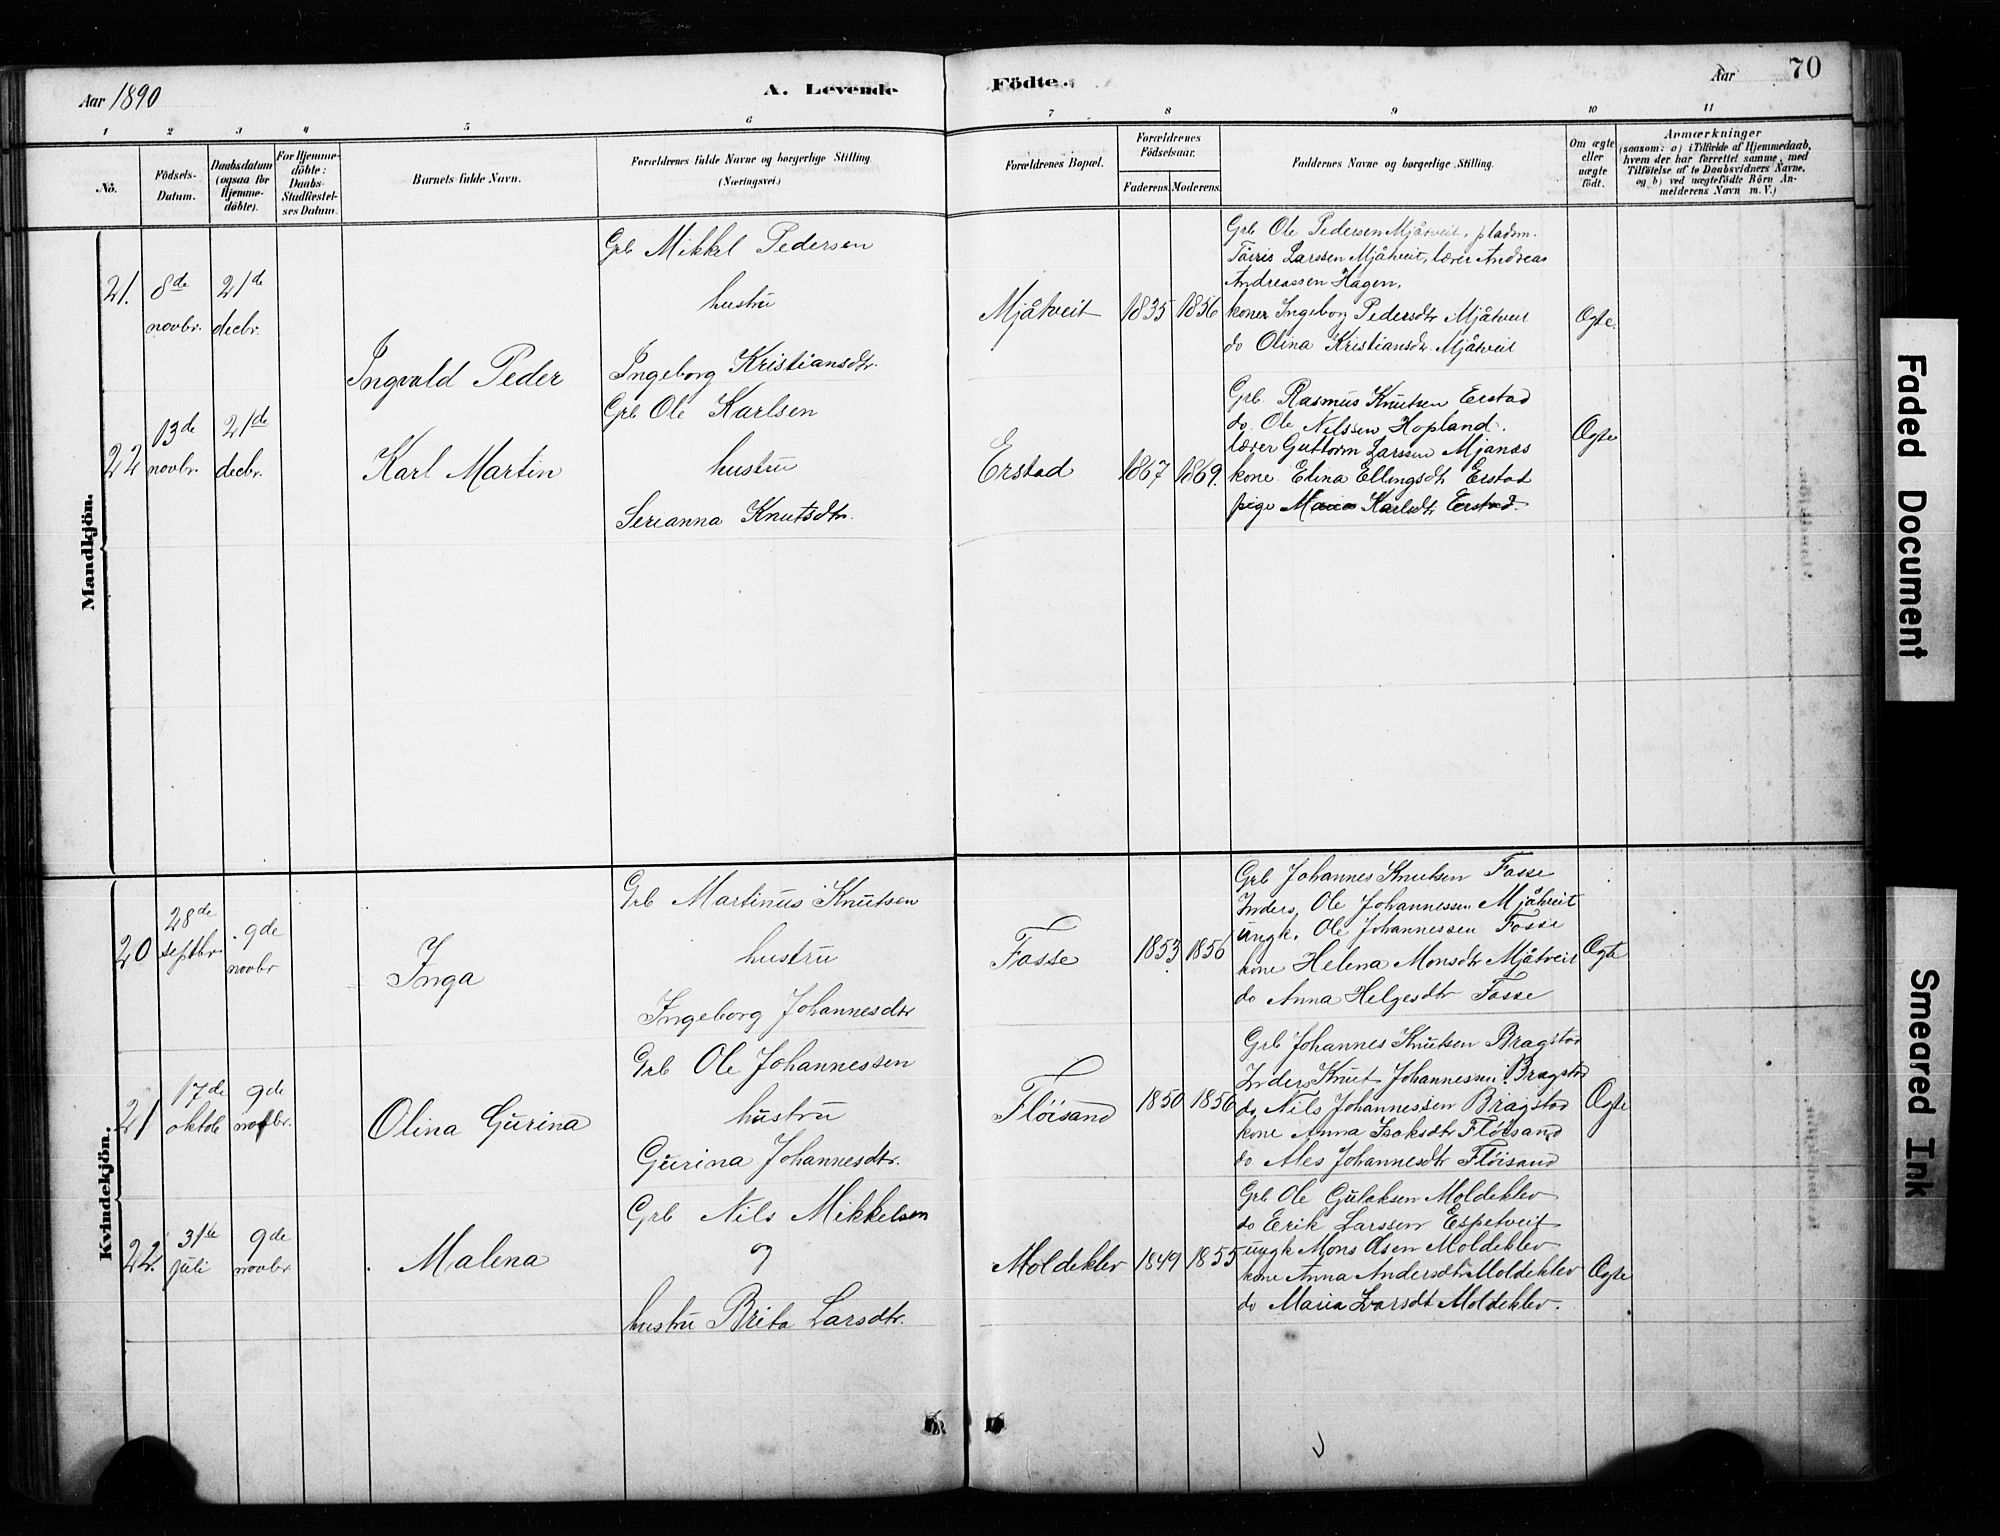 Aar 1890
A. Levende
Födte.
Aar
70
1 2 3 4 5 6 7 8 9 10 11
No.
Födsels-
Datum.
Daabsdatum
(ogsaa for
Hjemme-
döbte).
For Hjemme-
döbte:
Daabs-
Stadfæstel-
ses Datum.
Barnets fulde Navn.
Forældrenes fulde Navne og borgerlige Stilling.
(Næringsvei.)
Forældrenes Bopæl.
Forældrenes
Födselsaar.
Faderens. Moderens.
Faddernes Navne og borgerlige Stilling.
Om ægte
eller
uægte
födt.
Anmærkninger
(saasom: a) i Tilfælde af Hjemmedaab,
hvem der har forrettet samme, med
Tilföielse af to Daabsvidners Navne,
og b) ved uægtefödte Börn An-
melderens Navn m. V.)
Mandkjön.
21.
8de
novbr.
21de
decbr.
Ingvald Peder
Grb Mikkel Pedersen
hustru
Ingeborg Kristiansdtr.
Mjåtveit
1835 1856
Grb Ole Pedersen Mjåtveit, pladsm.
Larssen Mjåtveit, lærer Andreas
Andreassen Hagen,
koner Ingeborg Pedersdtr Mjåtveit
do Olina Kristiansdtr Mjåtveit
Ægte.
22
13de
novbr.
21de
decbr.
Karl Martin
Grb Ole Karlsen
hustru
Serianna Knutsdtr.
Erstad
1867 1869.
Grb. Rasmus Knutsen Erstad
do. Ole Nilssen Hopland.
lærer Guttorm Larssen Mjanæs
kone Elina Ellingsdtr Erstad
pige Maria Karlsdtr Erstad.
Ægte
Kvindekjön.
20
28de
septbr
9de
novbr
Inga
Grb Martinus Knutsen
hustru
Ingeborg Johannesdtr
Fosse
1853 1856
Grb Johannes Knutsen Fosse
Inders. Ole Johannessen Mjåtveit
ungk. Ole Johannessen Fosse
kone Helena Monsdtr Mjåtveit
do Anna Helgesdtr Fosse
Ægte
21
17de
oktob
9de
novbr.
Olina Gurina
Grb Ole Johannessen
hustru
Gurina Johannesdtr.
Flöisand
1850 1856
Grb Johannes Knutsen Bragstad
Inders Knut Johannessen Bragstad
do Nils Johannessen Bragstad
kone Anna Isaksdtr Flöisand
do Ales Johannesdtr Flöisand
Ægte
22.
31te
juli
9de
novbr
Malena
Grb Nils Mikkelsen
og
hustru Brita Larsdtr.
Moldeklev
1849 1855
Grb Ole Gulaksen Moldeklev
do Erik Larssen Espetveit
ungk Mons Olsen Moldeklev
kone Anna Andersdtr Moldeklev
do Maria Ivarsdt Moldeklev.
Ægte
Faded Document
Smeared Ink